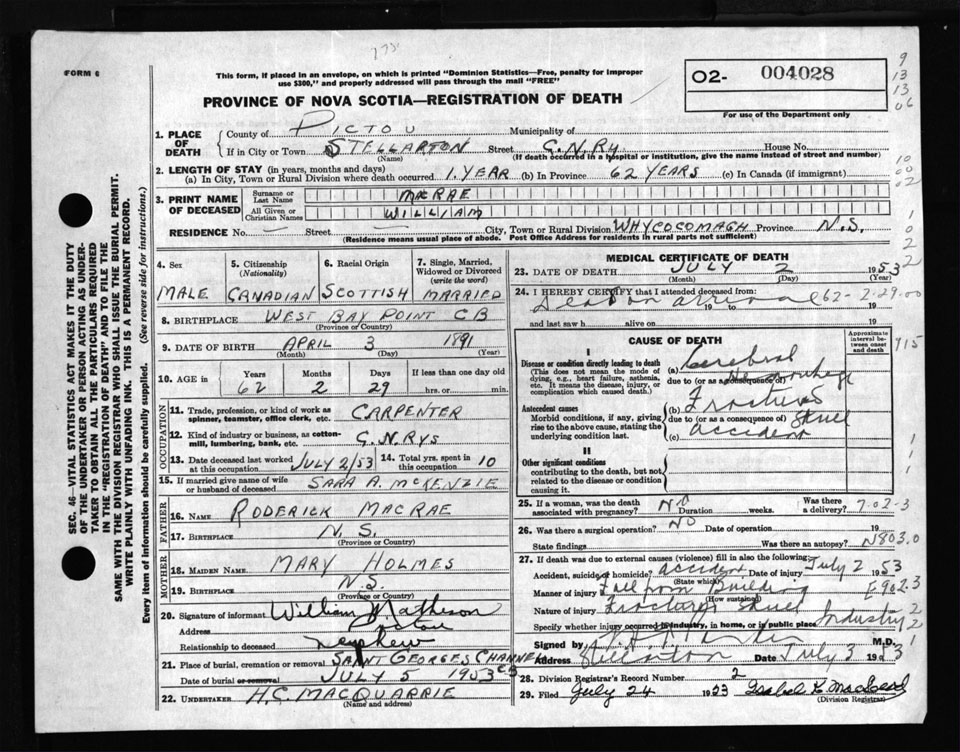 175
FORM 6
This form, if placed in an envelope, on which is printed "Dominion Statistics—Free, penalty for improper
use $300," and properly addressed will pass through the mail "FREE"
PROVINCE OF NOVA SCOTIA—REGISTRATION OF DEATH
O2- 004028
For use of the Department only
9
13
13
06
10
00
02
1. PLACE OF DEATH
County of PICTOU Municipality of
If in City or Town STELLARTON Street C.N.Ry House No.
(Name) (If death occurred in a hospital or institution, give the name instead of street and number)
2. LENGTH OF STAY (in years, months and days)
(a) In City, Town or Rural Division where death occurred 1 YEAR (b) In Province 62 YEARS (c) In Canada (if immigrant)
3. PRINT NAME OF DECEASED
Surname or Last Name MACRAE
All Given or Christian Names WILLIAM
RESIDENCE No. — Street — City, Town or Rural Division WHYCOCOMAGH Province N.S.
(Residence means usual place of abode. Post Office Address for residents in rural parts not sufficient)
4. Sex MALE
5. Citizenship (Nationality) CANADIAN
6. Racial Origin SCOTTISH
7. Single, Married, Widowed or Divorced (write the word) MARRIED
8. BIRTHPLACE WEST BAY POINT CB
(Province or Country)
9. DATE OF BIRTH APRIL 3 1891
(Month) (Day) (Year)
10. AGE in Years Months Days If less than one day old
62 2 29 hrs. or min.
OCCUPATION
11. Trade, profession, or kind of work as spinner, teamster, office clerk, etc. CARPENTER
12. Kind of industry or business, as cotton-mill, lumbering, bank, etc. C.N.RYS
13. Date deceased last worked at this occupation JULY 2/53
14. Total yrs. spent in this occupation 10
15. If married give name of wife or husband of deceased SARA A. MCKENZIE
FATHER
16. NAME RODERICK MACRAE
17. BIRTHPLACE N.S.
(Province or Country)
MOTHER
18. MAIDEN NAME MARY HOLMES
19. BIRTHPLACE N.S.
(Province or Country)
20. Signature of informant William Matheson
Address Pictou
Relationship to deceased nephew
21. Place of burial, cremation or removal SAINT GEORGES CHANNEL
Date of burial or removal JULY 5 1953 CB
22. UNDERTAKER H.C. MACQUARRIE
(Name and address)
MEDICAL CERTIFICATE OF DEATH
23. DATE OF DEATH JULY 2 1953
24. I HEREBY CERTIFY that I attended deceased from:
Dead on arrival 62-2-29.00
19 to 19
and last saw h alive on 19
CAUSE OF DEATH
Approximate interval between onset and death
I
Disease or condition directly leading to death
(This does not mean the mode of dying, e.g., heart failure, asthenia, etc. It means the disease, injury, or complication which caused death.)
(a) Cerebral Hemorrhage
due to (or as a consequence of)
Antecedent causes
Morbid conditions, if any, giving rise to the above cause, stating the underlying condition last.
(b) Fractured Skull
due to (or as a consequence of)
(c) accident
II
Other significant conditions
contributing to the death, but not related to the disease or condition causing it.
25. If a woman, was the death associated with pregnancy? NO Duration weeks. Was there a delivery? 7-02-3
26. Was there a surgical operation? NO Date of operation 19
State findings Was there an autopsy? N803.0
27. If death was due to external causes (violence) fill in also the following:
Accident, suicide or homicide? accident Date of injury July 2 1953
(State which)
Manner of injury Fall from Building E902.3
(How sustained)
Nature of injury Fractured Skull
Specify whether injury occurred in industry, in home, or in public place Industry
Signed by M.D.
Address Stellarton Date July 3 1953
28. Division Registrar's Record Number 2
29. Filed July 24 1953 Isabel K. MacLeod
(Division Registrar)
SEC. 46—VITAL STATISTICS ACT MAKES IT THE DUTY
OF THE UNDERTAKER OR PERSON ACTING AS UNDER-
TAKER TO OBTAIN ALL THE PARTICULARS REQUIRED
IN THE "REGISTRATION OF DEATH" AND TO FILE THE
SAME WITH THE DIVISION REGISTRAR WHO SHALL ISSUE THE BURIAL PERMIT.
WRITE PLAINLY WITH UNFADING INK. THIS IS A PERMANENT RECORD.
Every item of information should be carefully supplied. (See reverse side for instructions.)